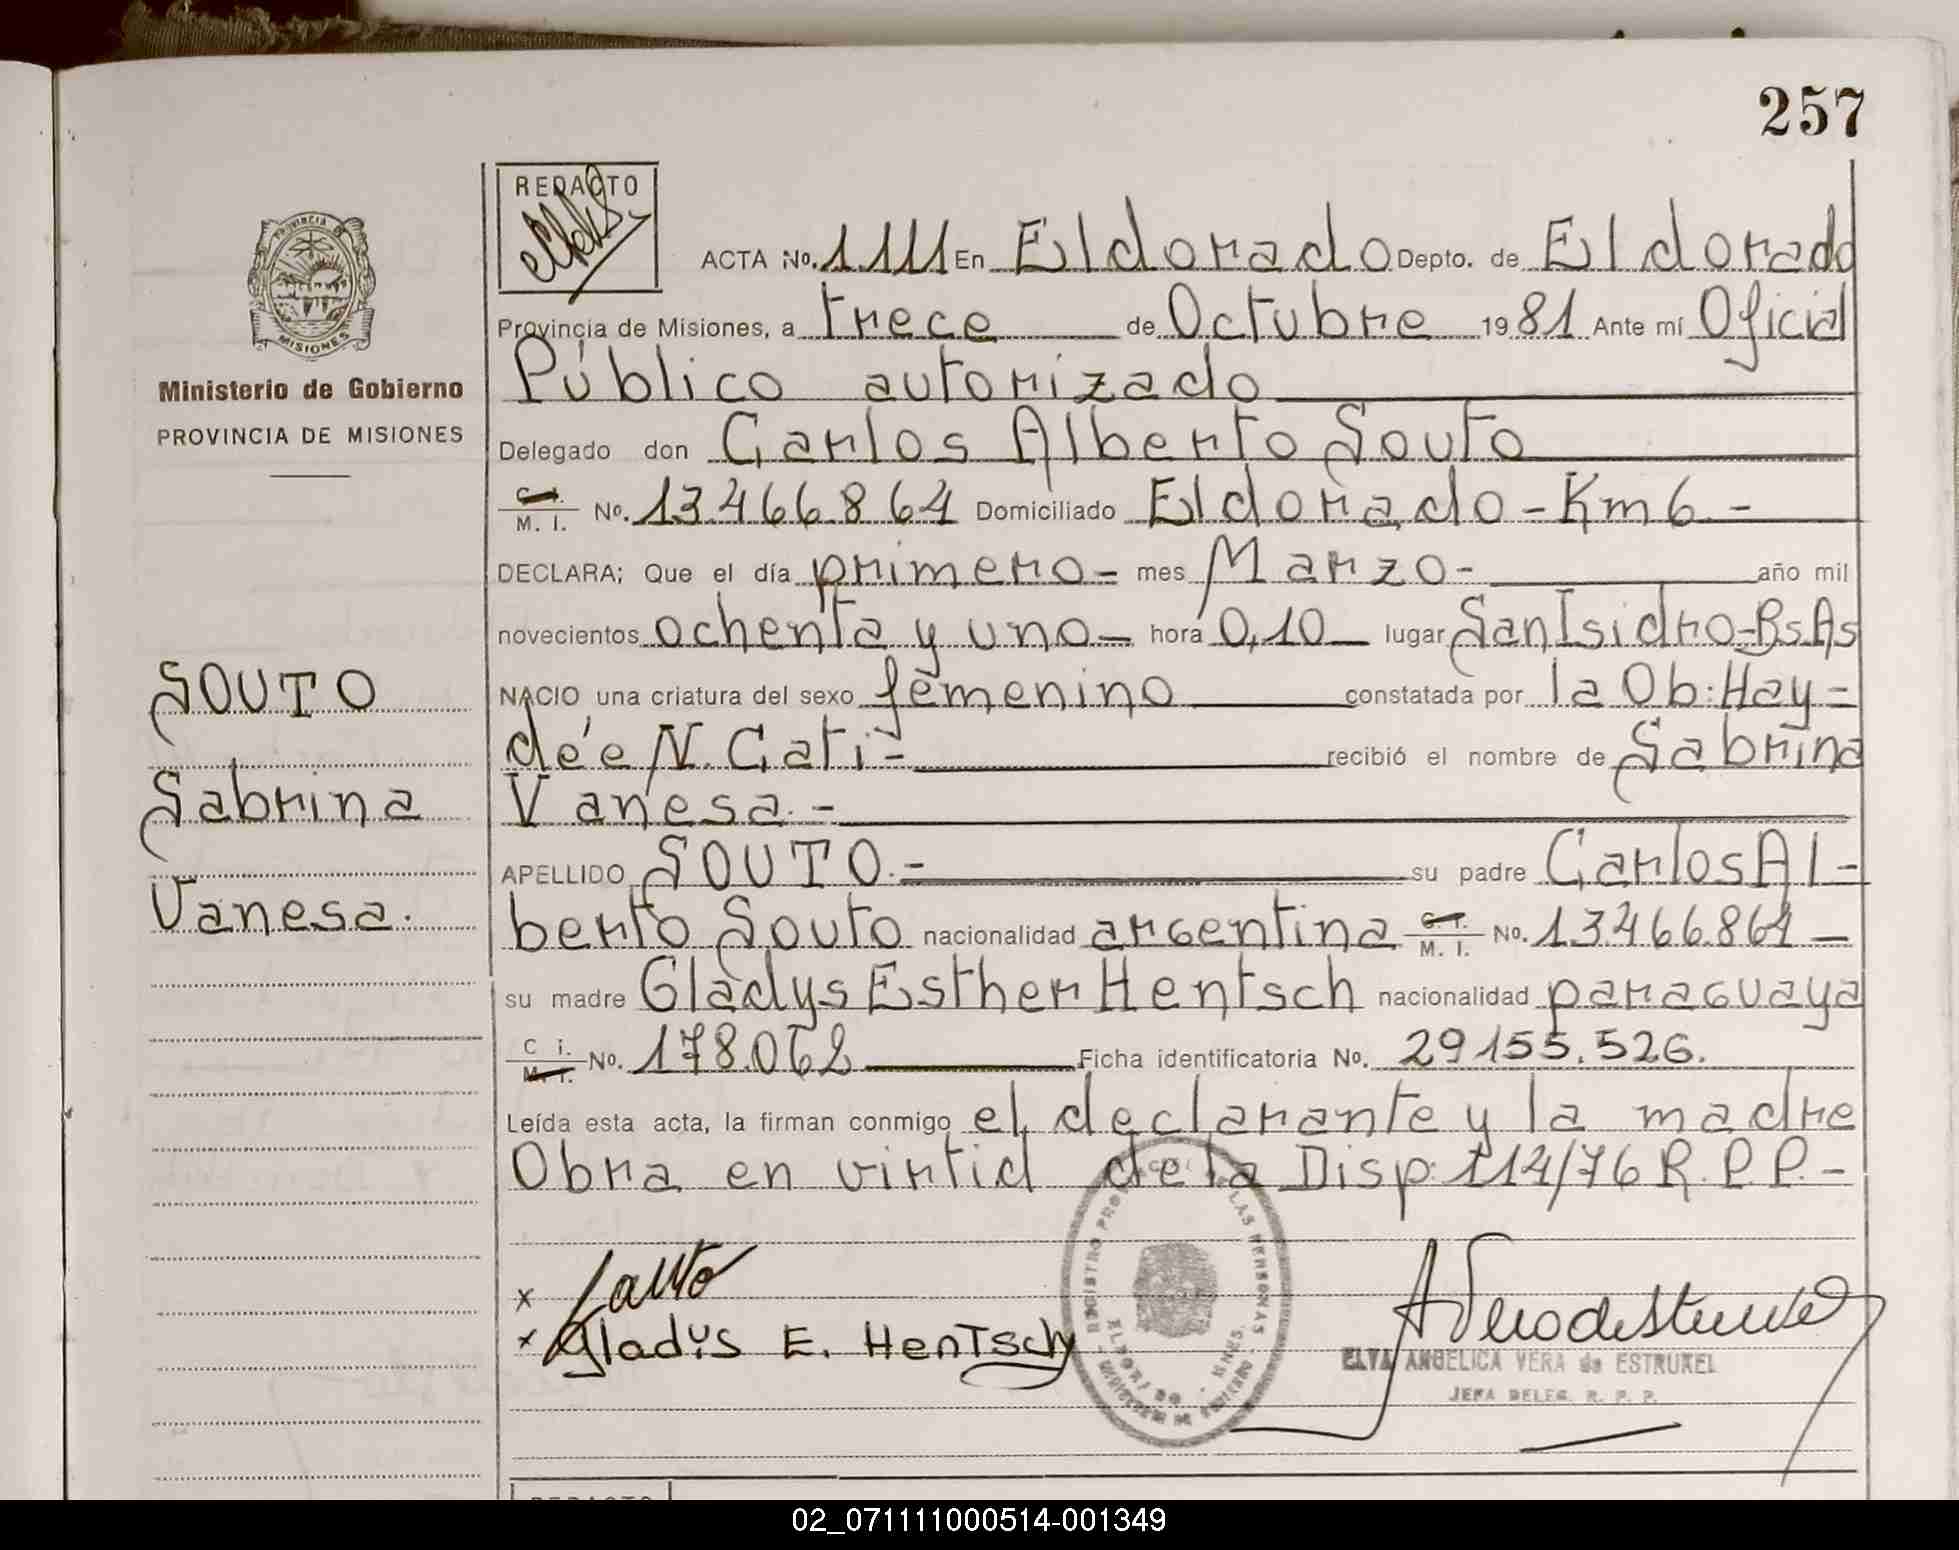 257
REDACTO
PROVINCIA DE
MISIONES
Ministerio de Gobierno
PROVINCIA DE MISIONES
ACTA No. 1111 En Eldorado Depto. de Eldorado
Provincia de Misiones, a trece de Octubre 1981 Ante mí Oficial
Público autorizado
Delegado don Carlos Alberto Souto
C. I. M. I. No. 13.466.864 Domiciliado Eldorado - Km 6. -
DECLARA; Que el día primero - mes Marzo - año mil
novecientos ochenta y uno - hora 0,10 lugar San Isidro - Bs As
NACIO una criatura del sexo femenino constatada por la Ob: Hay=
dée N. Gati - recibió el nombre de Sabrina
Vanesa. -
APELLIDO SOUTO. - su padre Carlos Al-
berto Souto nacionalidad argentina C. I. M. I. No. 13.466.864 -
su madre Gladys Esther Hentsch nacionalidad paraguaya
C i. M. I. No. 178.062 Ficha identificatoria No. 29155.526.
Leída esta acta, la firman conmigo el declarante y la madre
Obra en virtid de la Disp. 114/76 R. P. P. -
SOUTO
Sabrina
Vanesa.
x Souto
x Gladys E. Hentsch
ELVA ANGELICA VERA de ESTRUKEL
JEFA DELEG. R. P. P.
REDACTO
02_071111000514-001349